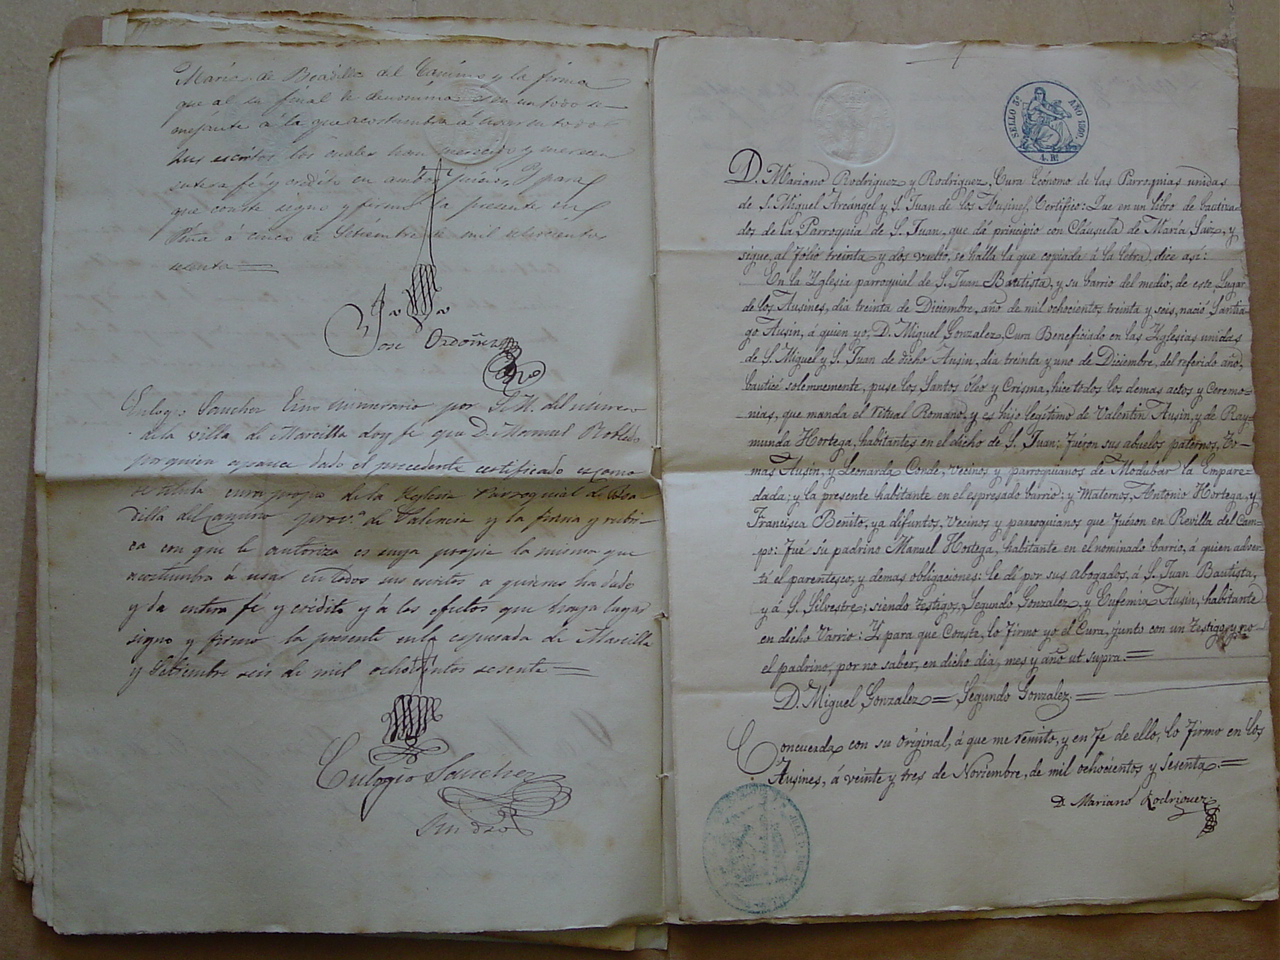 María de Boadilla del Camino y la firma
que al su final le denomina es en un todo se-
mejante á la que acostumbra á usar en todos
sus escritos los cuales han merecido y merecen
entera fé y crédito en ambos juicios, Y para
que conste signo y firmo la presente en
Piña á cinco de Setiembre de mil ochocientos
sesenta
José Ordoñez
Eulogio Sanchez Esno numerario por S.M. del número
de la villa de Marcilla doy fe que D. Manuel Robles
por quien aparece dado el precedente certificado es como
se titula cura propio de la Iglesia Parroquial de Boa
dilla del camino prov.ª de Palencia y la firma y rubri
ca con que le autoriza es suya propia la misma que
acostumbra á usar en todos sus escritos a quienes ha dado
y da entera fé y crédito y á los efectos que haya lugar
signo y firmo la presente en la espresada de Marcilla
y Setiembre seis de mil ochocientos sesenta
Eulogio Sanchez
SELLO 3º AÑO 1860.
D. Mariano Rodriguez y Rodriguez, Cura Ecónomo de las Parroquias unidas
de S. Miguel Arcángel y S. Juan de los Ausines, Certifico: Que en un libro de bautiza-
dos de la Parroquia de S. Juan, que dá principio con Cláusula de María Sáez, y
sigue, al fólio treinta y dos vuelto, se halla la que copiada á la letra, dice así:
En la Yglesia parroquial de S. Juan Bautista, y su barrio del medio, de este Lugar
de los Ausines, dia treinta de Diciembre, año de mil ochocientos treinta y seis, nació Santia-
go Ausin, á quien yo, D. Miguel Gonzalez, Cura Beneficiado en las Yglesias unidas
de S. Miguel y S. Juan de dicho Ausin, dia treinta y uno de Diciembre, del referido año,
bauticé solemnemente, puse los Santos Oleo y Crisma, hice todos los demas actos y Ceremo-
nias, que manda el ritual Romano, y es hijo legitimo de Valentin Ausin, y de Ray-
munda Hortega, habitantes en el dicho de S. Juan: fueron sus abuelos paternos, To-
mas Ausin, y Leonarda Conde, Vecinos y parroquianos de Modubar la Empare-
dada; y la presente habitante en el espresado barrio: y Maternos, Antonio Hortega, y
Francisca Benito, ya difuntos, Vecinos y parroquianos que fueron en Revilla del Cam-
po: Fué su padrino Manuel Hortega, habitante en el nominado barrio, á quien adver-
tí el parentesco, y demas obligaciones: le dí por sus abogados, á S. Juan Bautista,
y á S. Silvestre; siendo testigos, Segundo Gonzalez, y Eufemia Ausin, habitante
en dicho Varrio: Y para que Conste, lo firmo yo el Cura, junto con un testigo, y no
el padrino, por no saber, en dicho dia, mes y año ut supra.=
D. Miguel Gonzalez = Segundo Gonzalez. =
Concuerda con su original, á que me remito, y en fe de ello, lo firmo en los
Ausines, á veinte y tres de Noviembre, de mil ochocientos y sesenta =
D. Mariano Rodriguez